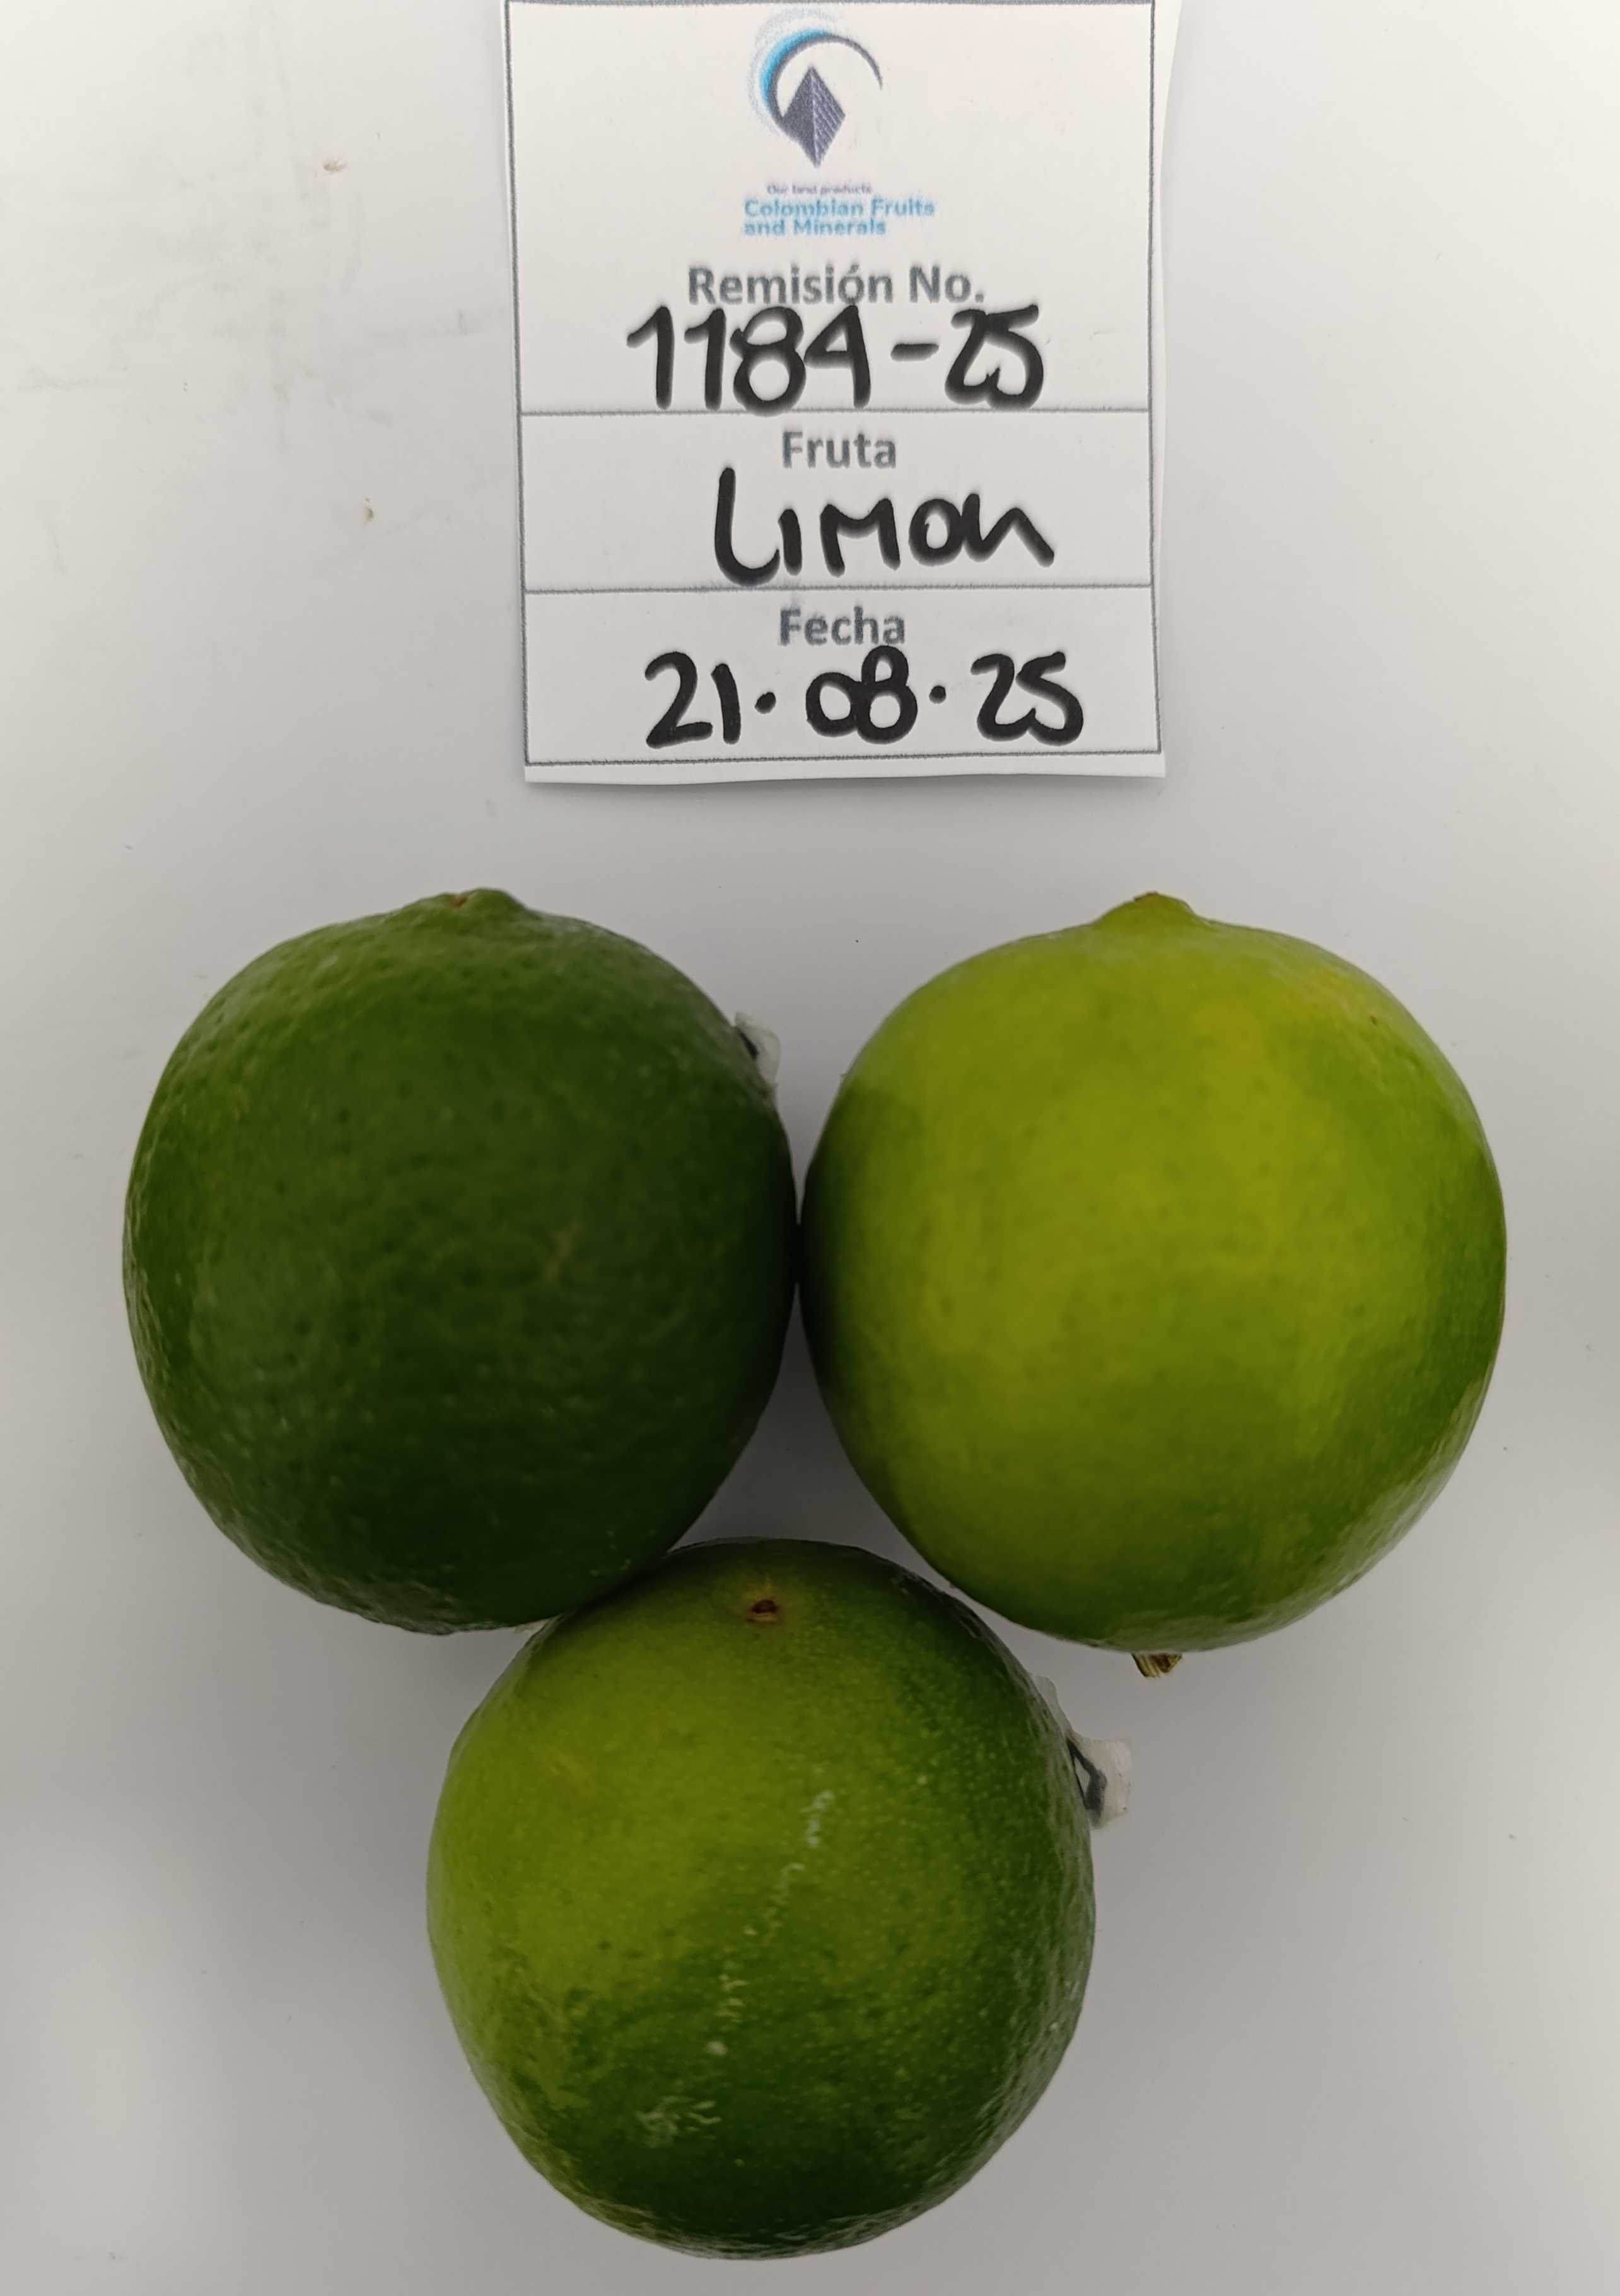 Our best products
Colombian Fruits
and Minerals
Remisión No.
1184-25
Fruta
LIMON
Fecha
21.08.25